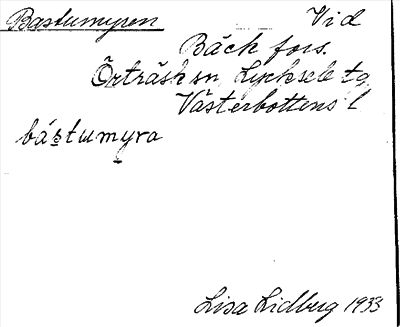 Bastumyren Vid
Bäck fors.
Örträsk sn, Lycksele tg
Västerbottens l
bástumyra
Lisa Lidberg 1933